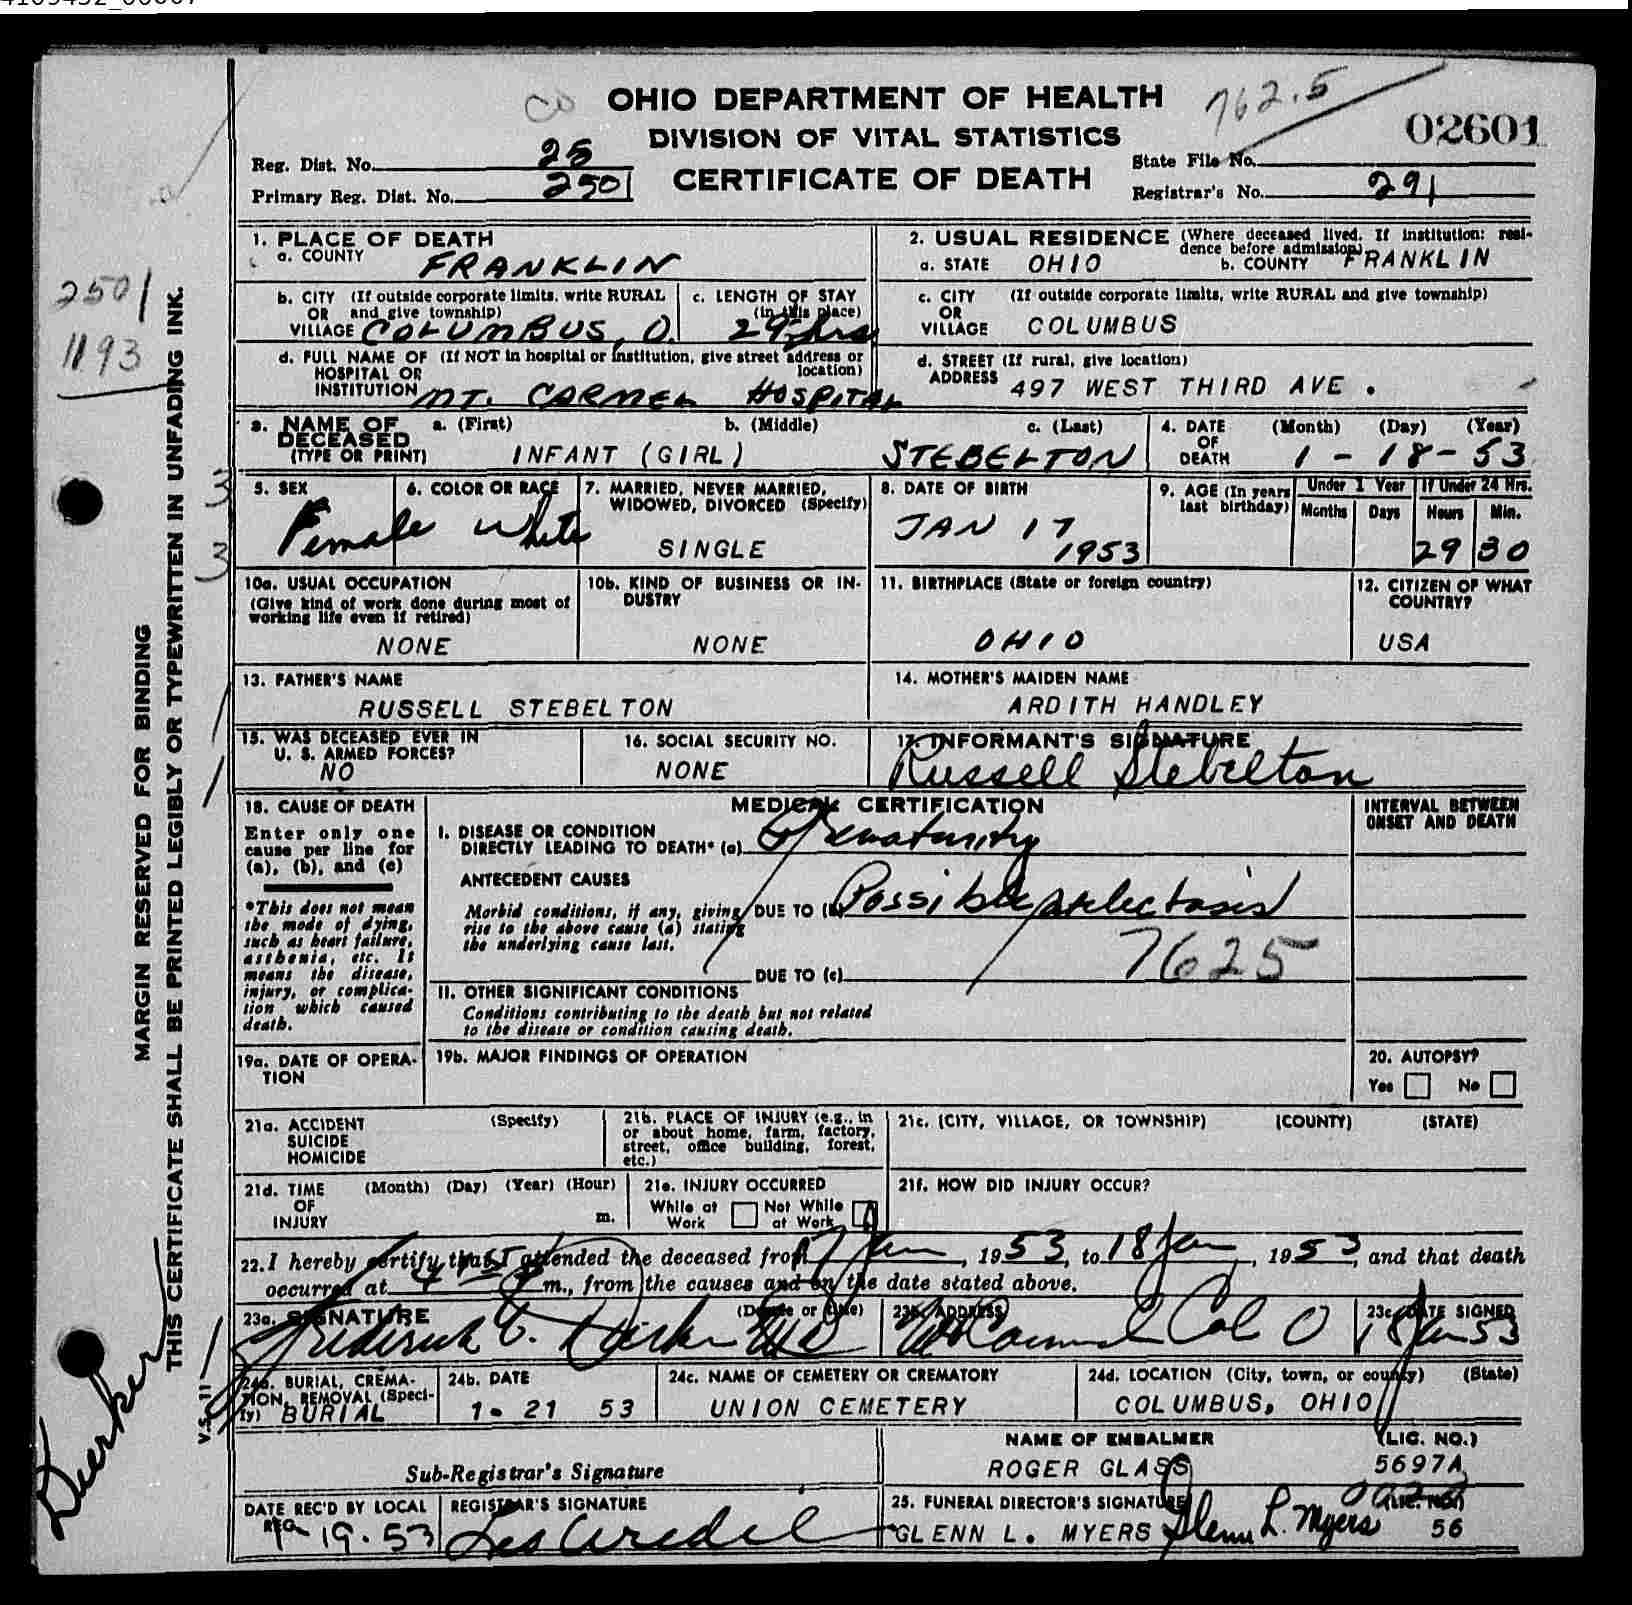 OHIO DEPARTMENT OF HEALTH
762.5
DIVISION OF VITAL STATISTICS
02601
CERTIFICATE OF DEATH
Reg. Dist. No. 25
Primary Reg. Dist. No. 2501
State File No.
Registrar's No. 291
2501
1193
MARGIN RESERVED FOR BINDING
THIS CERTIFICATE SHALL BE PRINTED LEGIBLY OR TYPEWRITTEN IN UNFADING INK.
V.S. 11
Duerker
3
3
1. PLACE OF DEATH
a. COUNTY FRANKLIN
2. USUAL RESIDENCE (Where deceased lived. If institution: residence before admission)
a. STATE OHIO b. COUNTY FRANKLIN
b. CITY (If outside corporate limits, write RURAL
OR and give township)
VILLAGE COLUMBUS, O.
c. LENGTH OF STAY
(in this place)
29½ hrs
c. CITY (If outside corporate limits, write RURAL and give township)
OR
VILLAGE COLUMBUS
d. FULL NAME OF (If NOT in hospital or institution, give street address or location)
HOSPITAL OR
INSTITUTION MT. CARMEL HOSPITAL
d. STREET (If rural, give location)
ADDRESS 497 WEST THIRD AVE .
3. NAME OF DECEASED
(TYPE OR PRINT)
a. (First) b. (Middle) c. (Last)
INFANT (GIRL) STEBELTON
4. DATE OF DEATH (Month) (Day) (Year)
1 - 18 - 53
5. SEX
Female
6. COLOR OR RACE
White
7. MARRIED, NEVER MARRIED,
WIDOWED, DIVORCED (Specify)
SINGLE
8. DATE OF BIRTH
JAN 17
1953
9. AGE (In years last birthday)
Under 1 Year
Months Days
If Under 24 Hrs.
Hours Min.
29 30
10a. USUAL OCCUPATION
(Give kind of work done during most of
working life even if retired)
NONE
10b. KIND OF BUSINESS OR INDUSTRY
NONE
11. BIRTHPLACE (State or foreign country)
OHIO
12. CITIZEN OF WHAT COUNTRY?
USA
13. FATHER'S NAME
RUSSELL STEBELTON
14. MOTHER'S MAIDEN NAME
ARDITH HANDLEY
15. WAS DECEASED EVER IN
U. S. ARMED FORCES?
NO
16. SOCIAL SECURITY NO.
NONE
17. INFORMANT'S SIGNATURE
Russell Stebelton
18. CAUSE OF DEATH
Enter only one
cause per line for
(a), (b), and (c)
*This does not mean
the mode of dying,
such as heart failure,
asthenia, etc. It
means the disease,
injury, or complica-
tion which caused
death.
MEDICAL CERTIFICATION
I. DISEASE OR CONDITION
DIRECTLY LEADING TO DEATH* (a) Prematurity
ANTECEDENT CAUSES
Morbid conditions, if any, giving
rise to the above cause (a) stating
the underlying cause last.
DUE TO (b) Possible atelectasis
7625
DUE TO (c)
II. OTHER SIGNIFICANT CONDITIONS
Conditions contributing to the death but not related
to the disease or condition causing death.
INTERVAL BETWEEN
ONSET AND DEATH
19a. DATE OF OPERA-
TION
19b. MAJOR FINDINGS OF OPERATION
20. AUTOPSY?
Yes No
21a. ACCIDENT (Specify)
SUICIDE
HOMICIDE
21b. PLACE OF INJURY (e.g., in
or about home, farm, factory,
street, office building, forest,
etc.)
21c. (CITY, VILLAGE, OR TOWNSHIP) (COUNTY) (STATE)
21d. TIME (Month) (Day) (Year) (Hour)
OF
INJURY m.
21e. INJURY OCCURRED
While at Work Not While at Work
21f. HOW DID INJURY OCCUR?
22. I hereby certify that I attended the deceased from 17 Jan, 1953, to 18 Jan, 1953, and that death
occurred at m., from the causes and on the date stated above.
23a. SIGNATURE (Degree or title)
23b. ADDRESS
Mt Carmel Col O
23c. DATE SIGNED
18 Jan 53
24a. BURIAL, CREMA-
TION, REMOVAL (Speci-
fy) BURIAL
24b. DATE
1- 21 53
24c. NAME OF CEMETERY OR CREMATORY
UNION CEMETERY
24d. LOCATION (City, town, or county) (State)
COLUMBUS, OHIO
Sub-Registrar's Signature
NAME OF EMBALMER (LIC. NO.)
ROGER GLASS 5697A
DATE REC'D BY LOCAL
REG.
1-19-53
REGISTRAR'S SIGNATURE
25. FUNERAL DIRECTOR'S SIGNATURE (LIC. NO.)
GLENN L. MYERS Glenn L. Myers 56